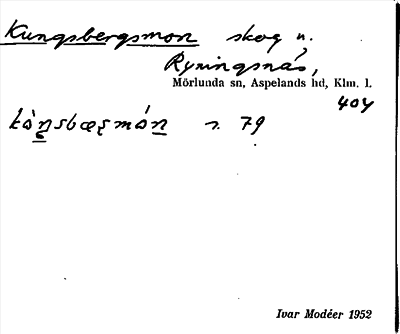 Kungsbergsmon skog u.
Ryningsnäs,
Mörlunda sn, Aspelands hd, Klm. l.
404
s. 79
Ivar Modéer 1952